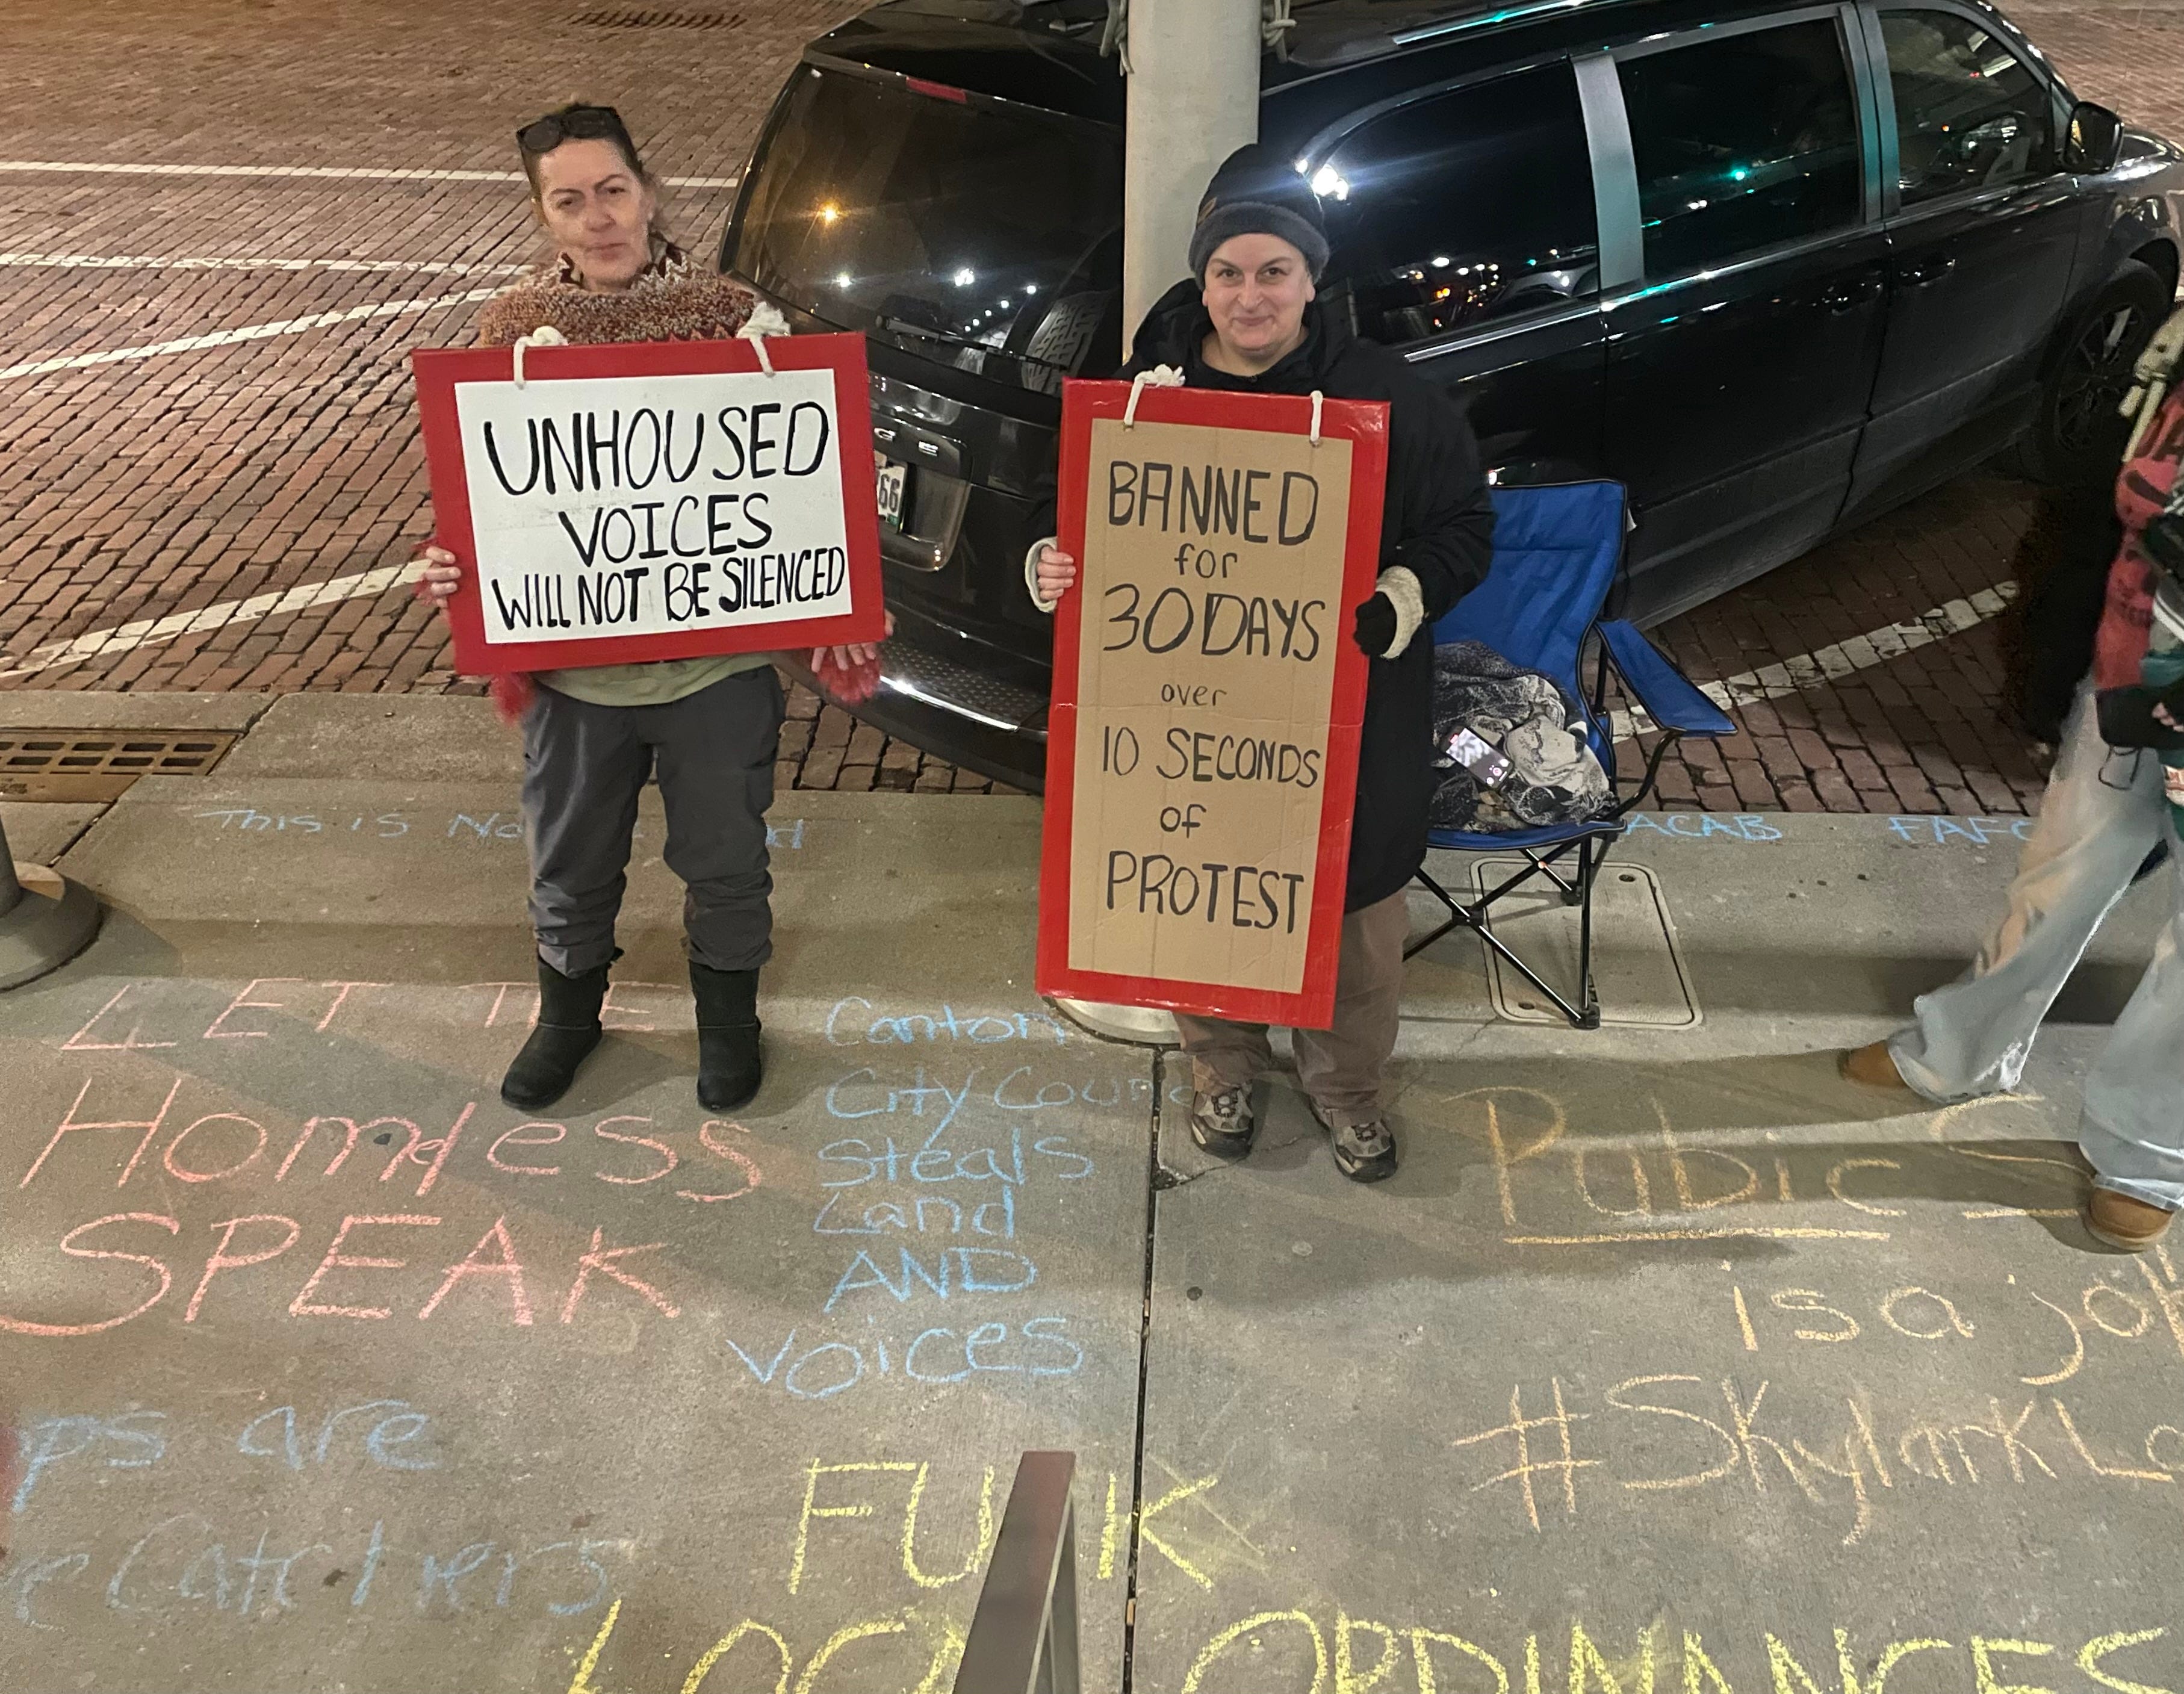 UNHOUSED
VOICES
WILL NOT BE SILENCED
BANNED
for
30 DAYS
over
10 SECONDS
of
PROTEST
66
This is
ACAB
FAFO
LET THE
Homeless
SPEAK
Canton
City Council
Steals
Land
AND
Voices
Public
is a
#Skylark
ps are
Catchers
FU K
LOCAL ORDINANCES